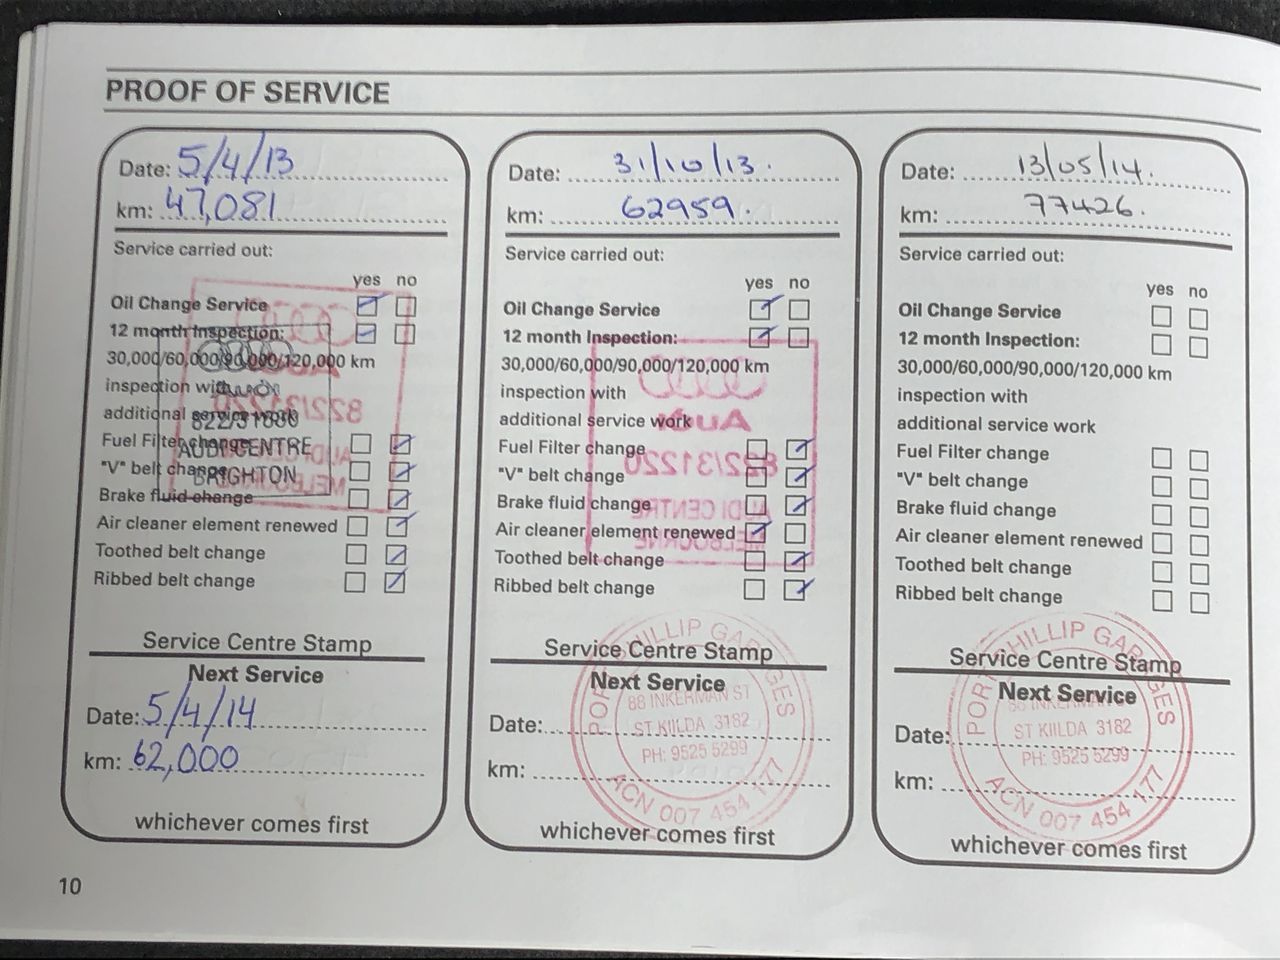 PROOF OF SERVICE
Date: 5/4/13
km: 47,081
Service carried out:
yes no
Oil Change Service
12 month Inspection:
30,000/60,000/90,000/120,000 km
inspection with
additional service work
Fuel Filter change
"V" belt change
Brake fluid change
Air cleaner element renewed
Toothed belt change
Ribbed belt change
AUDI CENTRE
BRIGHTON
Service Centre Stamp
Next Service
Date: 5/4/14
km: 62,000
whichever comes first
Date: 31/10/13.
km: 62959.
Service carried out:
yes no
Oil Change Service
12 month Inspection:
30,000/60,000/90,000/120,000 km
inspection with
additional service work
Fuel Filter change
"V" belt change
Brake fluid change
Air cleaner element renewed
Toothed belt change
Ribbed belt change
Audi
822/31220
AUDI CENTRE
MELBOURNE
Service Centre Stamp
Next Service
PORT PHILLIP GARAGES
88 INKERMAN ST
ST KIILDA 3182
PH: 9525 5299
ACN 007 454 177
Date:
km:
whichever comes first
Date: 13/05/14.
km: 77426.
Service carried out:
yes no
Oil Change Service
12 month Inspection:
30,000/60,000/90,000/120,000 km
inspection with
additional service work
Fuel Filter change
"V" belt change
Brake fluid change
Air cleaner element renewed
Toothed belt change
Ribbed belt change
Service Centre Stamp
Next Service
PORT PHILLIP GARAGES
88 INKERMAN ST
ST KIILDA 3182
PH: 9525 5299
ACN 007 454 177
Date:
km:
whichever comes first
10